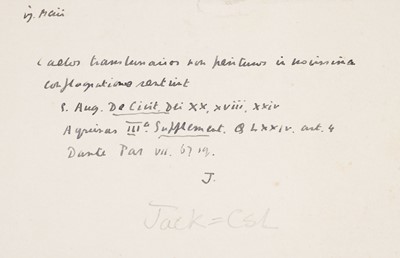 iij. Maii
Caelos translunaires non perituros in novissima
conflagratione sentiunt
S. Aug. De Civit. Dei XX, xviii, xxiv
Aquinas IIIa. Supplement. Q LXXIV. art. 4
Dante Par VII. 67
J.
Jack = CSL